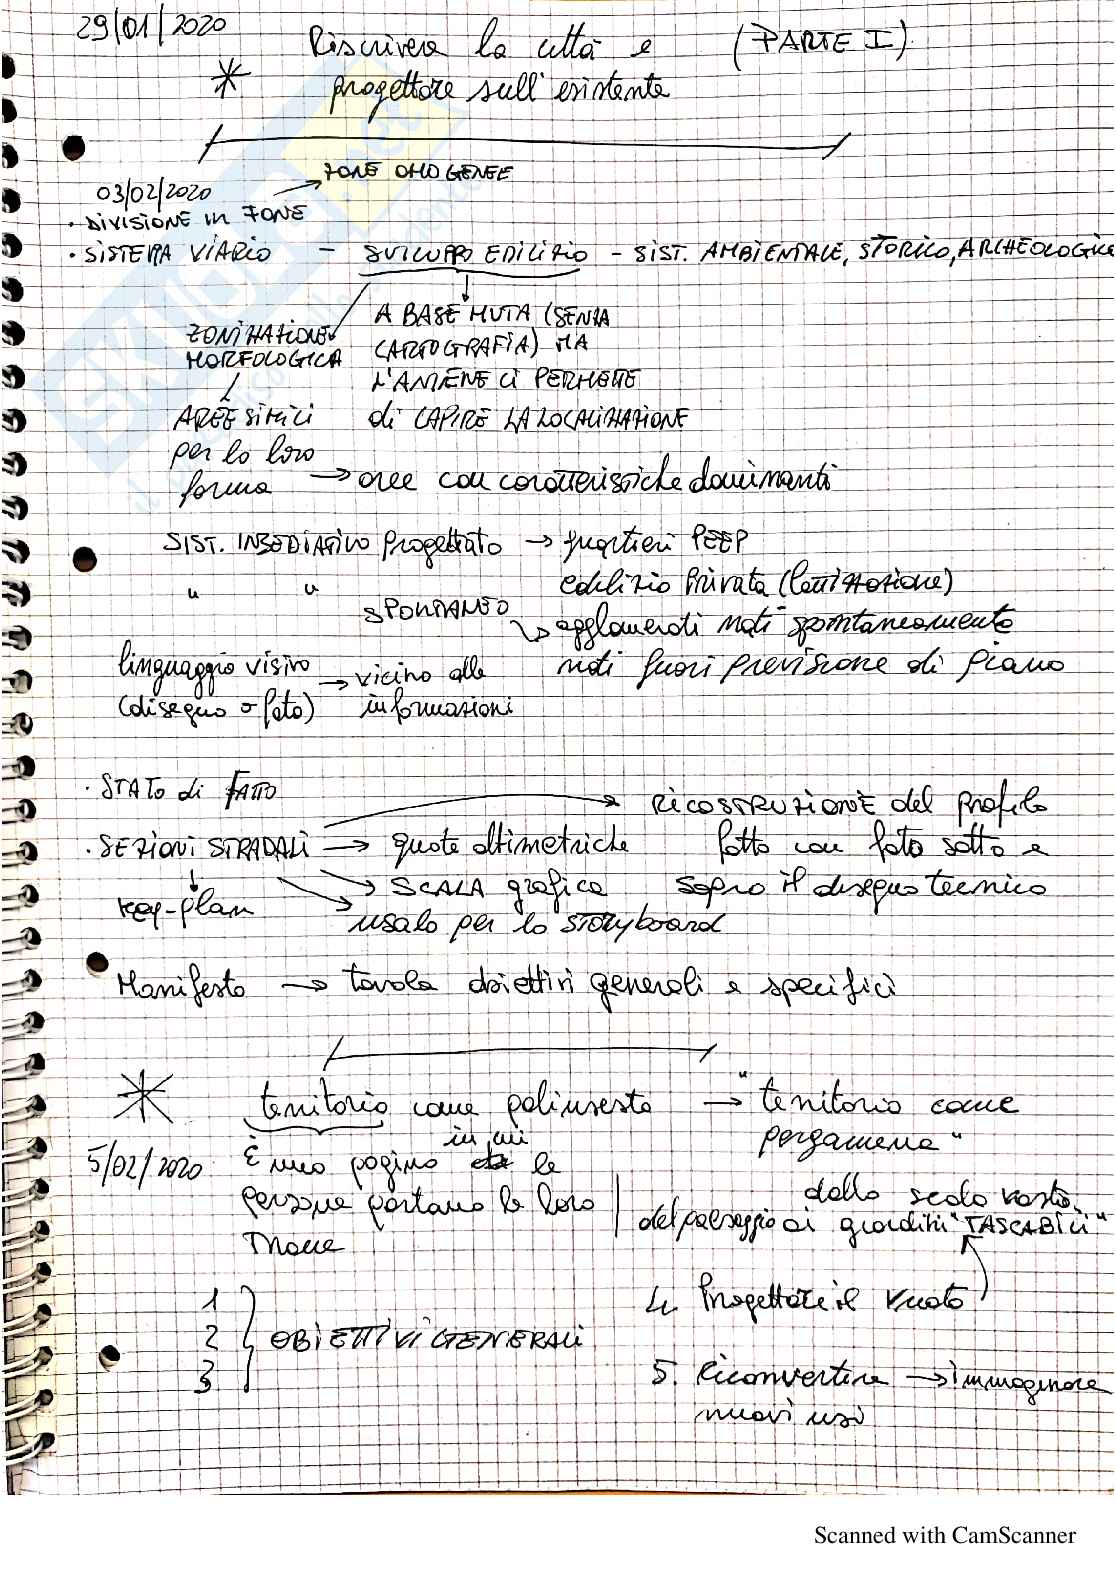 29/01/2020
Riscrivere la città e (PARTE I)
* progettare sull'esistente
ZONE OMOGENEE
03/02/2020
· DIVISIONE IN ZONE
· SISTEMA VIARIO - SVILUPPO EDILIZIO - SIST. AMBIENTALE, STORICO, ARCHEOLOGICO
ZONIZZAZIONE MORFOLOGICA
A BASE MUTA (SENZA
CARTOGRAFIA) MA
L'ANIENE CI PERMETTE
di CAPIRE LA LOCALIZZAZIONE
AREE SIMILI
per la loro
forma → aree con caratteristiche dominanti
SIST. INSEDIATIVO progettato → quartieri PEEP
edilizia privata (lottizzazione)
" " SPONTANEO → agglomerati nati spontaneamente
nati fuori previsione di piano
linguaggio visivo → vicino alle
(disegno o foto) informazioni
· STATO di FATTO
→ RICOSTRUZIONE del profilo
fatto con foto sotto e
sopra il disegno tecnico
· SEZIONI STRADALI → quote altimetriche
→ SCALA grafica
key-plan
usalo per lo storyboard
Manifesto → tavola obiettivi generali e specifici
* territorio come palinsesto → "territorio come
pergamena"
5/02/2020
È una pagina in cui le
persone portano le loro
trame
dalla scala vasta
del paesaggio ai giardini "TASCABILI"
1
2 OBIETTIVI GENERALI
3
4. Progettare il vuoto
5. Riconvertire → immaginare
nuovi usi
Scanned with CamScanner